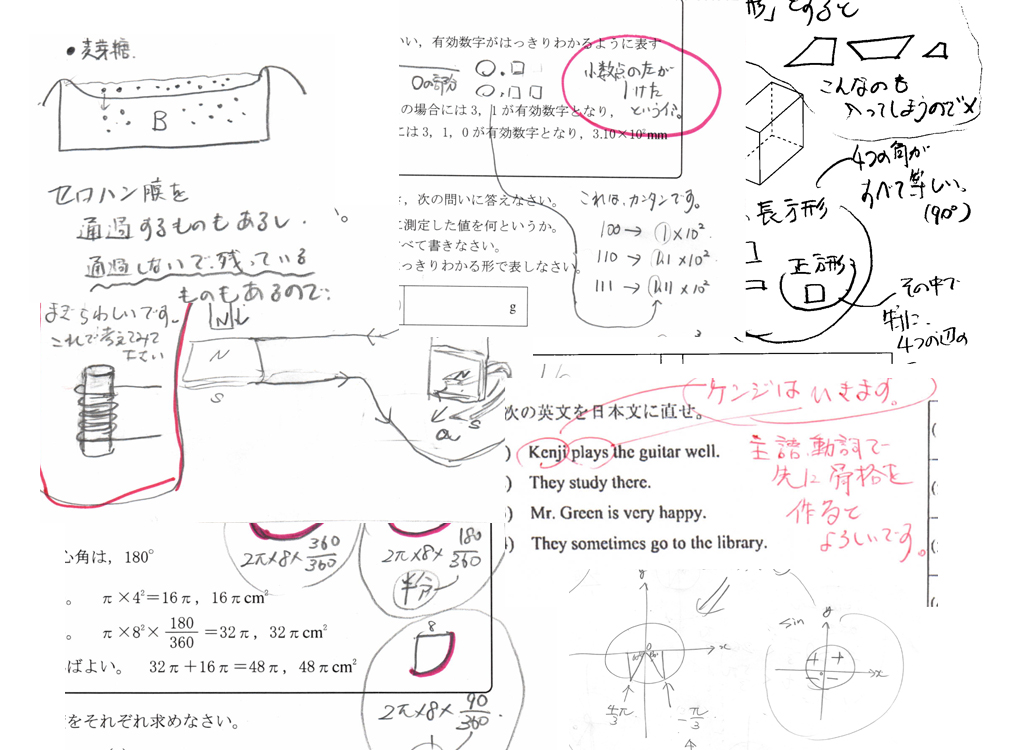 ●麦芽糖.
B
セロハン膜を
通過するものもあるし.
通過しないで残っている
ものもあるので
まぎらわしいです。
これで考えてみて
下さい
N
N
S
N
S
い，有効数字がはっきりわかるように表す
0の部分
小数点の左が
1けた
という。
の場合には 3，1 が有効数字となり，
には 3，1，0 が有効数字となり，3.10×10²mm
次の問いに答えなさい。
に測定した値を何というか。
べて書きなさい。
はっきりわかる形で表しなさい。
g
これは、カンタンです。
100 → 1×10²
110 → 1.1×10²
111 → 1.11×10²
形」とすると
こんなのも
入ってしまうので×
4つの角が
すべて等しい。
(90°)
長方形
正方形
その中で
特に、
4つの辺の
次の英文を日本文に直せ。
ケンジは いきます。
) Kenji plays the guitar well.
) They study there.
) Mr. Green is very happy.
) They sometimes go to the library.
主語、動詞で
先に骨格を
作ると
よろしいです。
心角は，180°
2π×8×360/360
2π×8×180/360
半分
。 π×4²＝16π，16πcm²
。 π×8²×180/360＝32π，32πcm²
ばよい。 32π＋16π＝48π，48πcm²
8
2π×8×90/360
をそれぞれ求めなさい。
y
x
4/3π
-π/3
sin
y
x
+ +
- -